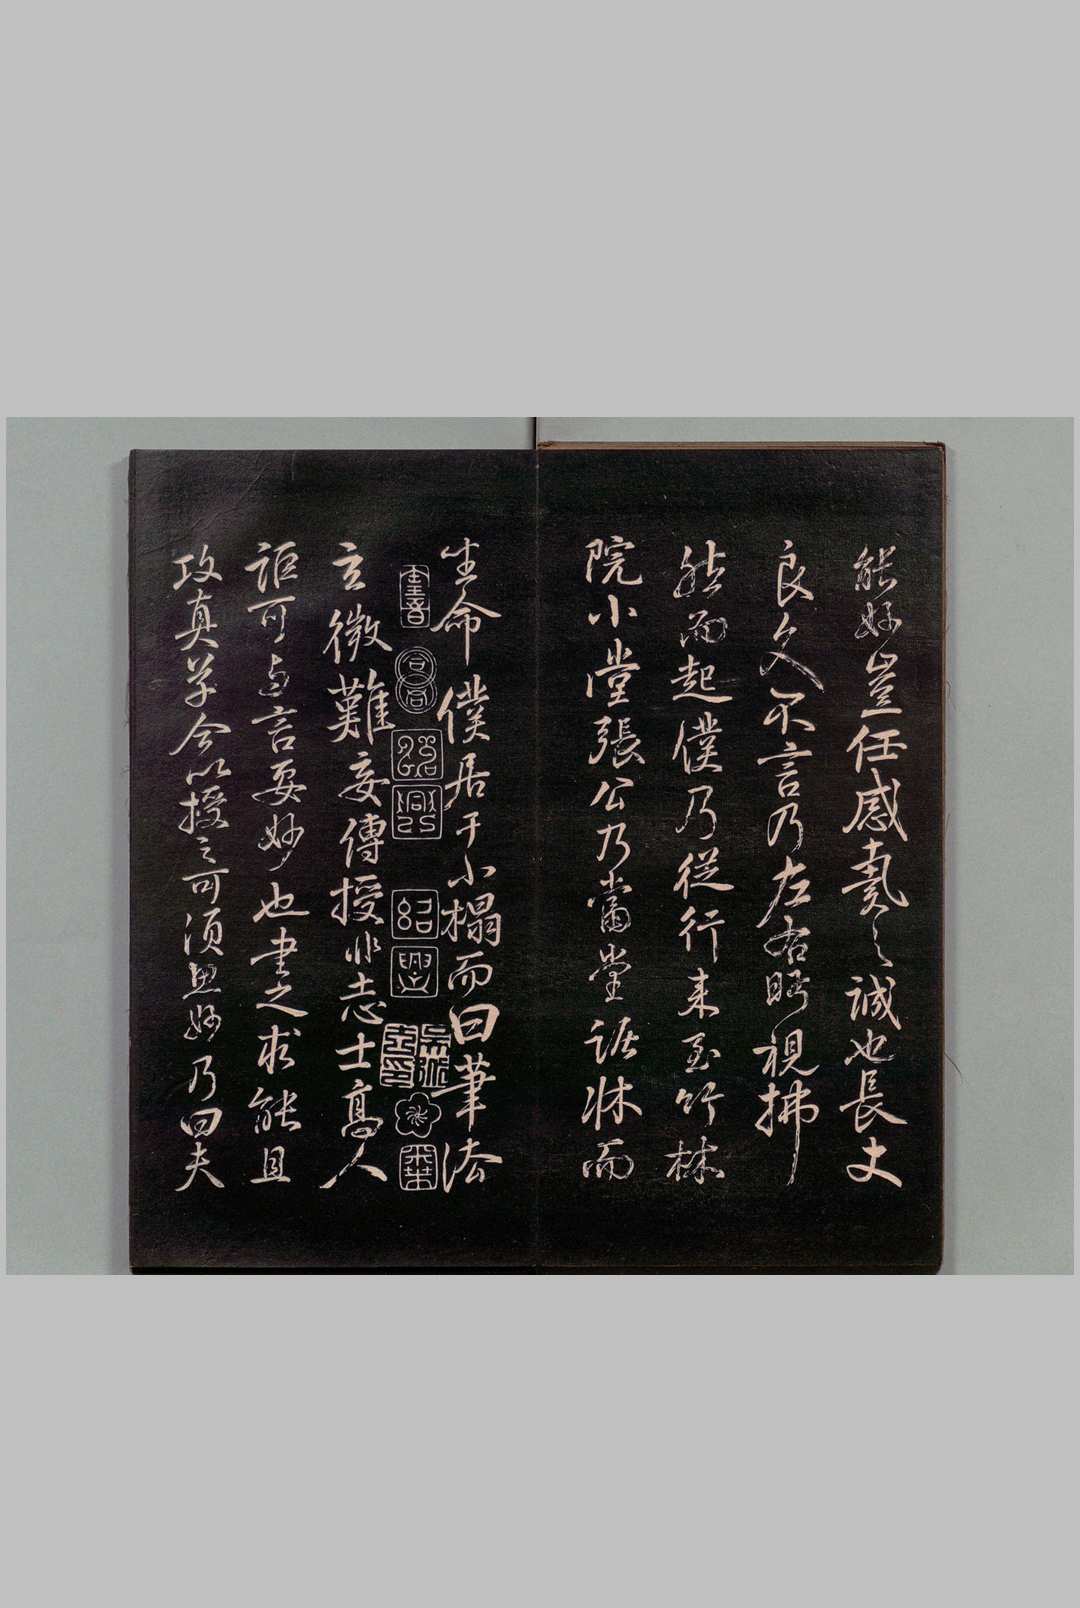 能妙豈任感戴之誠也長史
良久不言乃左右眄視拂
然而起僕乃從行來至竹林
院小堂張公乃當堂踞牀而
坐命僕居于小榻而曰筆法
玄微難妄傳授非志士高人
詎可與言要妙也書之求能且
攻真草今以授之可須思妙乃曰夫
紹興